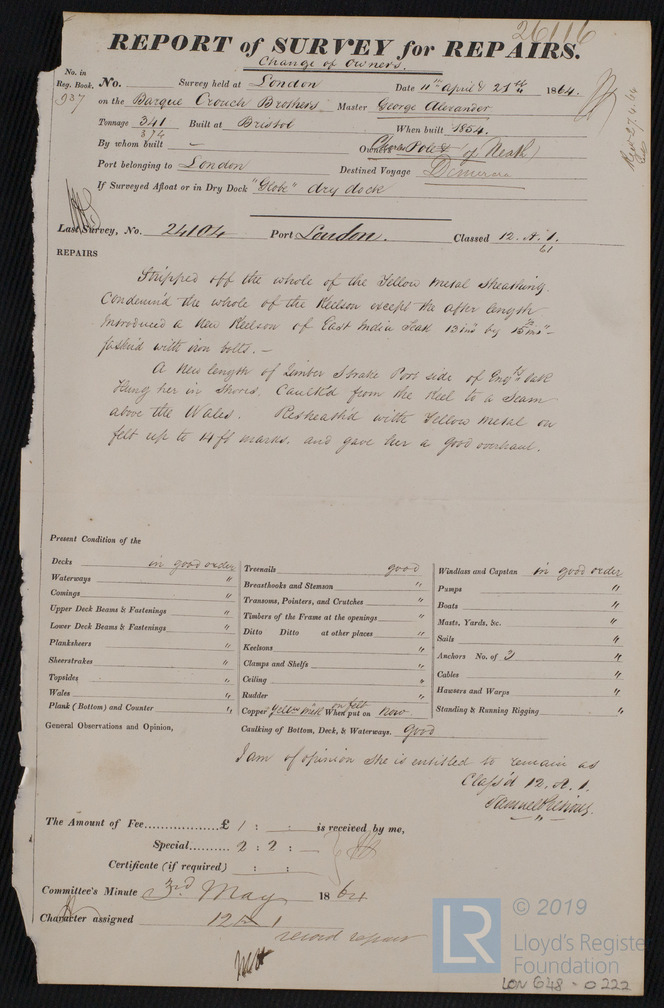 26116
REPORT of SURVEY for REPAIRS.
Change of Owners.
No. in Reg. Book. 937
No. Survey held at London Date 11th April & 21st 1864.
on the Barque Crouch Brothers Master George Alexander
Tonnage 341 Built at Bristol When built 1854.
374
By whom built — Owners Charles Pole & of Neath
Port belonging to London Destined Voyage Demerara
If Surveyed Afloat or in Dry Dock "Globe" dry dock
Last Survey, No. 24104 Port London. Classed 12. A. 1.
61
REPAIRS
Stripped off the whole of the Yellow Metal Sheathing.
Condemn'd the whole of the Keelson except the after length
Introduced a New Keelson of East India Teak 13 ins by
fasten'd with iron bolts. —
A New length of Limber Strake Port side of Eng'h Oak
Hung her in Shores. Caulk'd from the Keel to a Seam
above the Wales. Resheath'd with Yellow Metal on
felt up to 14 ft marks. and gave her a good overhaul.
Present Condition of the
Decks in good order
Waterways "
Comings "
Upper Deck Beams & Fastenings "
Lower Deck Beams & Fastenings "
Planksheers "
Sheerstrakes "
Topsides "
Wales "
Plank (Bottom) and Counter "
Treenails good
Breasthooks and Stemson "
Transoms, Pointers, and Crutches "
Timbers of the Frame at the openings "
Ditto Ditto at other places "
Keelsons "
Clamps and Shelfs "
Ceiling "
Rudder "
Copper Yellow Metal on felt When put on New
Caulking of Bottom, Deck, & Waterways. Good
Windlass and Capstan in good order
Pumps "
Boats "
Masts, Yards, &c. "
Sails "
Anchors No. of 3 "
Cables "
Hawsers and Warps "
Standing & Running Rigging "
General Observations and Opinion,
I am of opinion she is entitled to remain as
Class'd 12. A. 1.
The Amount of Fee £ 1 : : is received by me,
Special 2 : 2 : —
Certificate (if required) : :
Committee's Minute 3rd May 1864
Character assigned 12 A 1
record repair
LR
© 2019
Lloyd's Register
Foundation
LON 648 - 0222